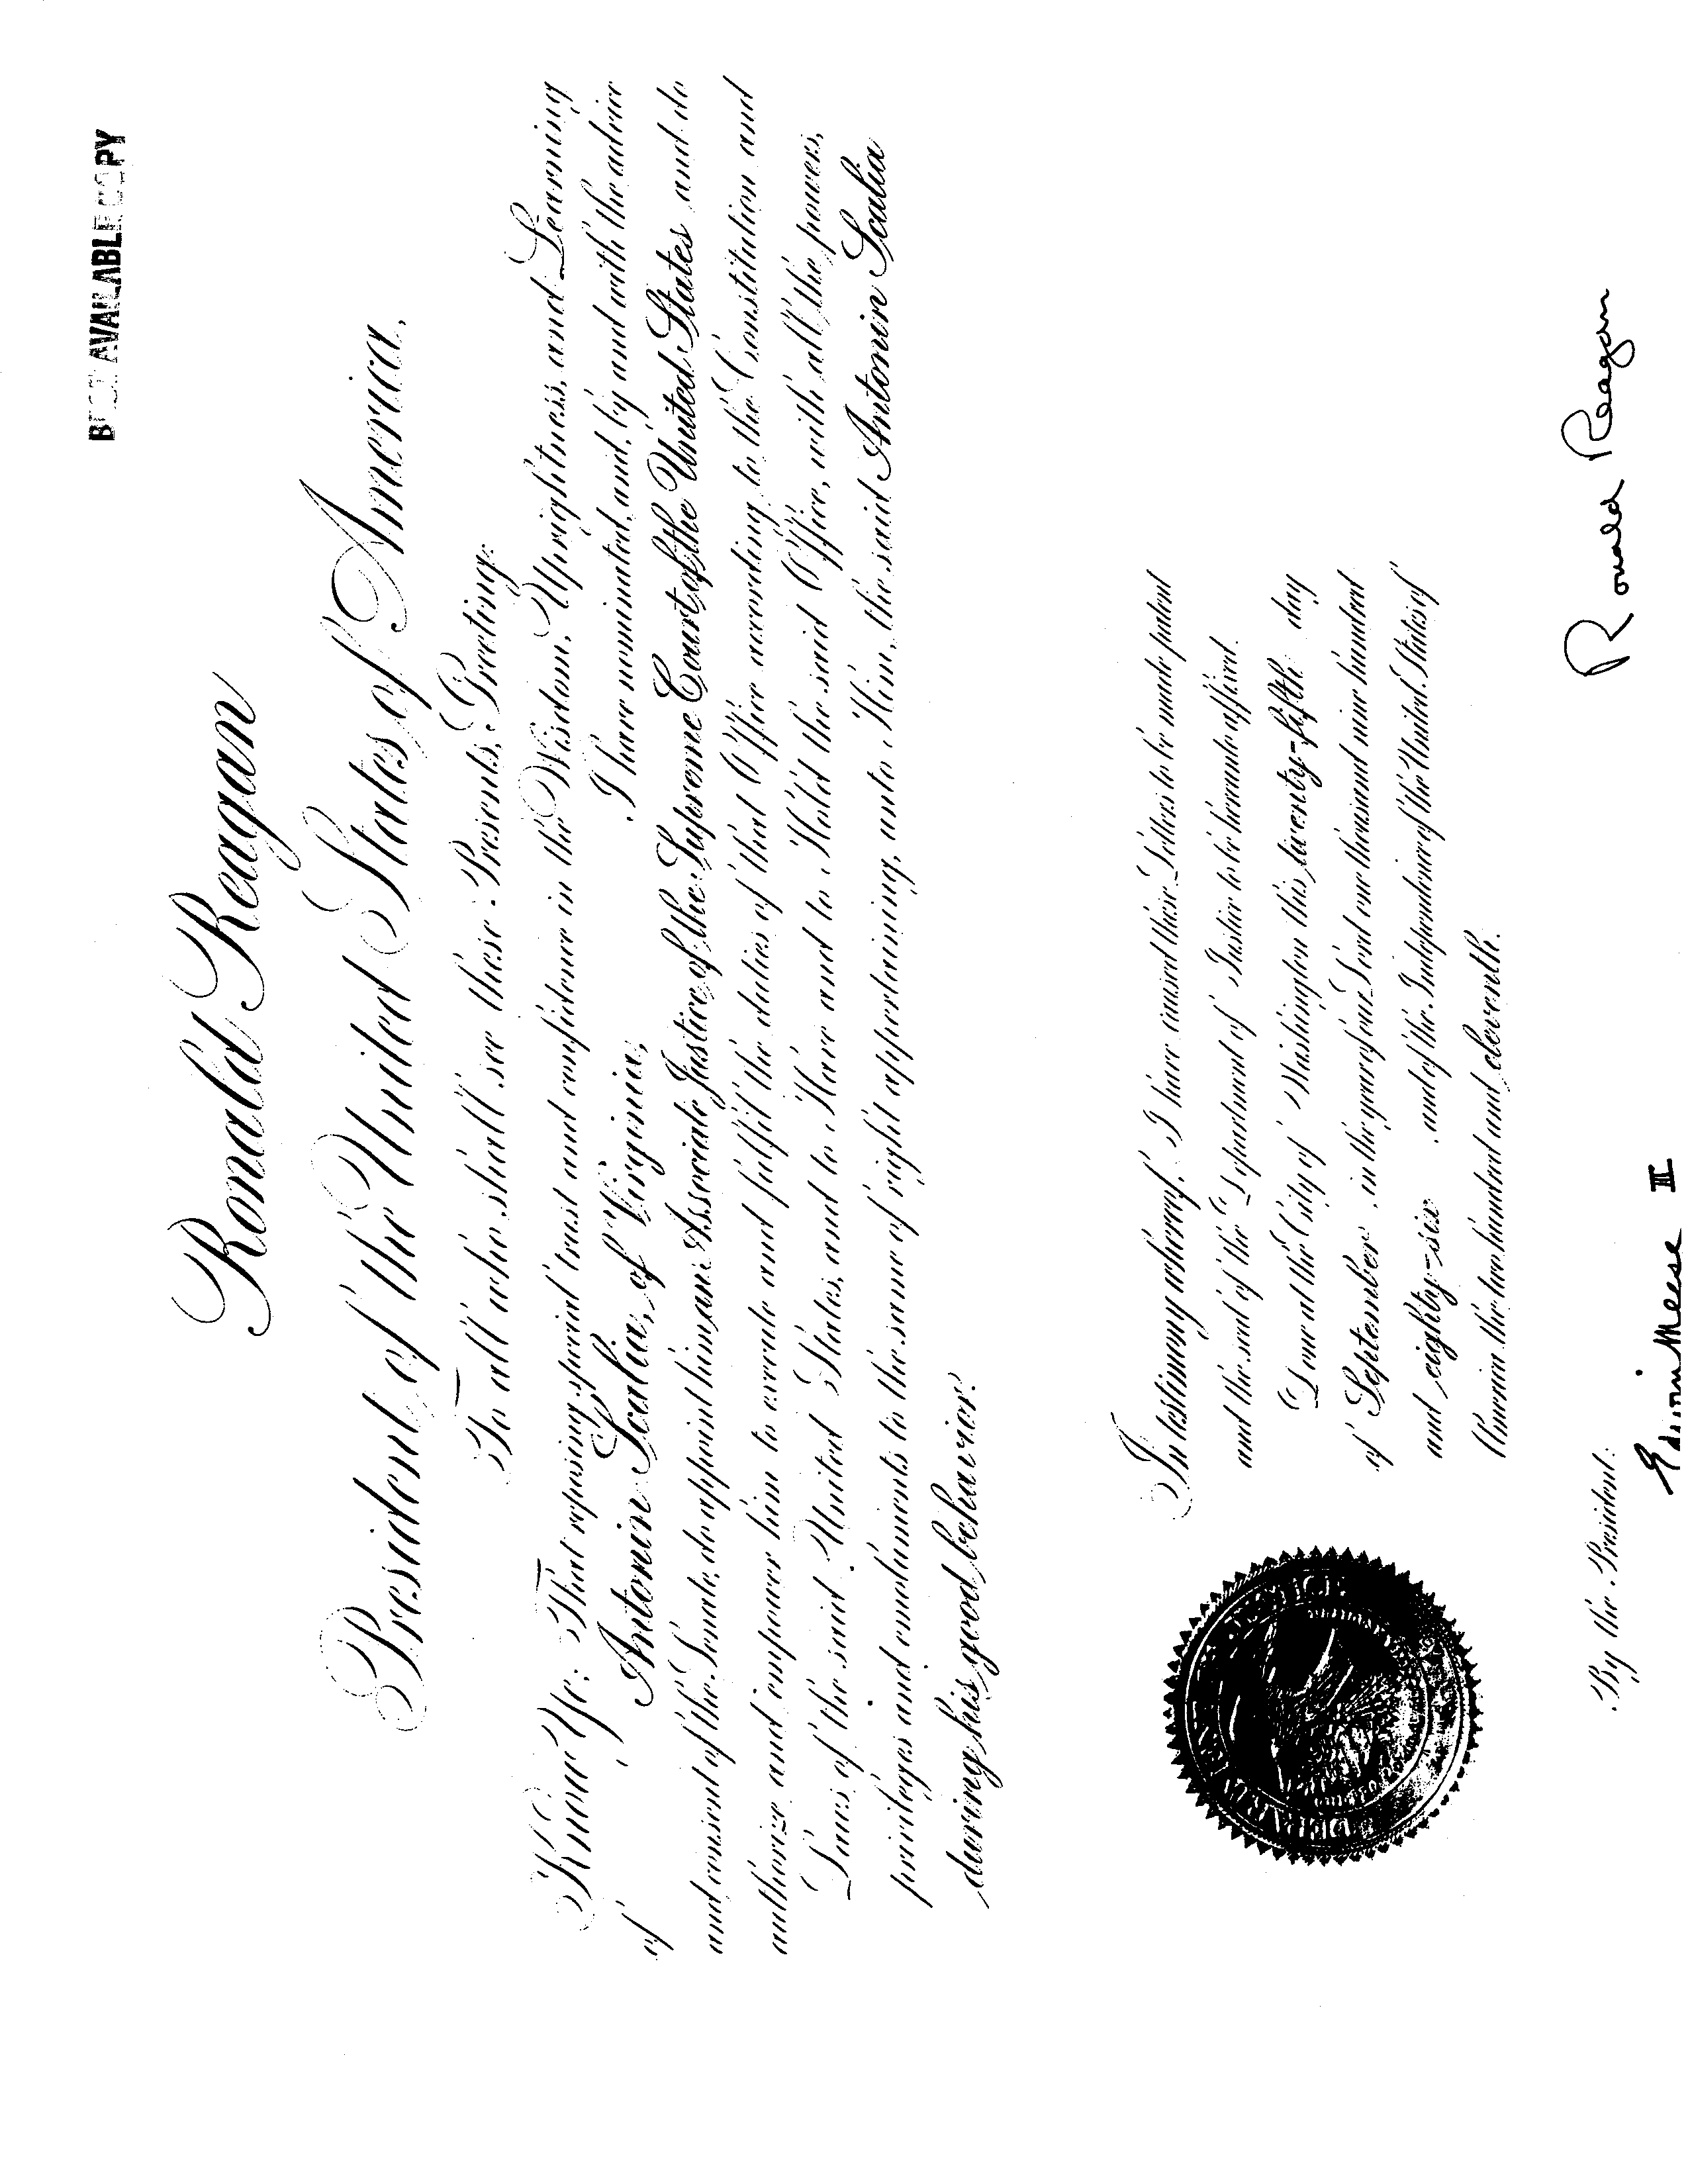 BEST AVAILABLE COPY
Ronald Reagan
President of the United States of America,
To all who shall see these Presents, Greeting:
Know Ye: That reposing special trust and confidence in the Wisdom, Uprightness, and Learning
of Antonin Scalia, of Virginia, I have nominated, and, by and with the advice
and consent of the Senate, do appoint him an Associate Justice of the Supreme Court of the United States and do
authorize and empower him to execute and fulfil the duties of that Office according to the Constitution and
Laws of the said United States, and to Have and to Hold the said Office, with all the powers,
privileges and emoluments to the same of right appertaining, unto Him, the said Antonin Scalia
during his good behavior.
In testimony whereof, I have caused these Letters to be made patent
and the seal of the Department of Justice to be hereunto affixed.
Done at the City of Washington this twenty-fifth day
of September in the year of our Lord one thousand nine hundred
and eighty-six and of the Independence of the United States of
America the two hundred and eleventh.
DEPARTMENT OF JUSTICE
Ronald Reagan
By the President:
Edwin Meese III